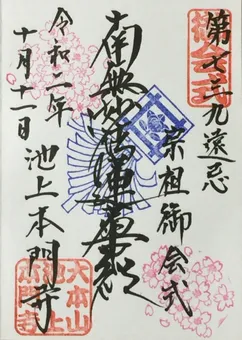 第七三九遠忌
宗祖御会式
南無妙法蓮華経
令和二年
十月十二日
池上本門寺
大本山
池上
本門寺